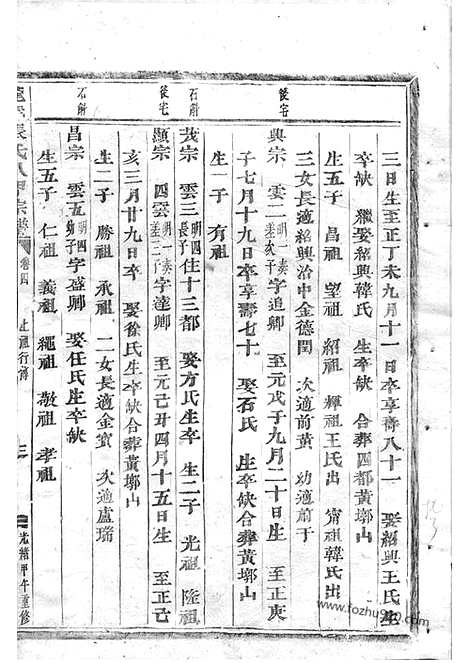 三日生至正丁未九月十一日卒享壽八十一 娶紹興王氏生
卒缺 繼娶紹興韓氏 生卒缺 合葬四都黃墎山
生五子 昌祖 望祖 紹祖 輝祖王氏出 甯祖韓氏出
三女長適紹興治中金德閏 次適前黃 幼適前于
後宅
興宗 雲二 明一奏差次子 字追卿 至元戊子九月二十日生 至正庚
子七月十九日卒享壽七十 娶石氏 生卒缺合葬黃墎山
生一子 有祖
石斛
茂宗 雲三 明四長子 住十三都 娶方氏生卒 生二子 光祖 隆祖
後宅
顯宗 四雲 明一奏差三子 字達卿 至元己丑四月十五日生 至正己
亥三月廿九日卒 娶徐氏生卒缺合葬黃墎山
生二子 勝祖 承祖 二女長適金寶 次適盧瑞
石斛
昌宗 雲五 明四次子 字盛卿 娶任氏生卒缺
生五子 仁祖 義祖 繩祖 敬祖 孝祖
張氏 宗譜 卷四 行傳 光緒甲午重修
www.fozhu920.com